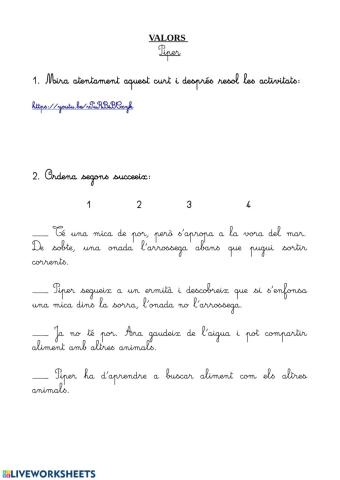 VALORS
Piper
1. Mira atentament aquest curt i després resol les activitats:
2. Ordena segons succeeix:
1 2 3 4
___ Té una mica de por, però s'apropa a la vora del mar.
De sobte, una onada l'arrossega abans que pugui sortir
corrents.
___ Piper segueix a un ermità i descobreix que si s'enfonsa
una mica dins la sorra, l'onada no l'arrossega.
___ Ja no té por. Ara gaudeix de l'aigua i pot compartir
aliment amb altres animals.
___ Piper ha d'aprendre a buscar aliment com els altres
animals.
LIVEWORKSHEETS